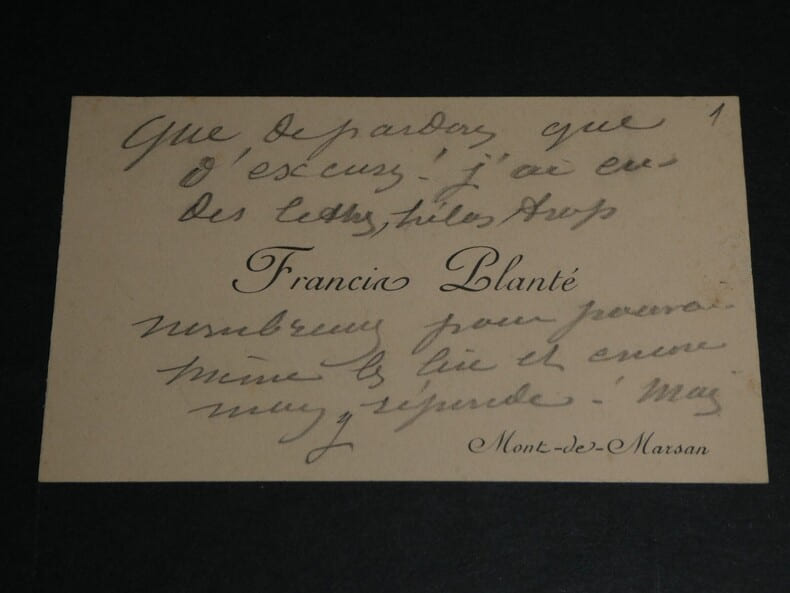 1
Que de pardons que
d'excuses! j'ai eu
des lettres, hélas trop
Francis Planté
nombreuses pour pouvoir
même les lire et encore
moins y répondre! Mais
Mont-de-Marsan